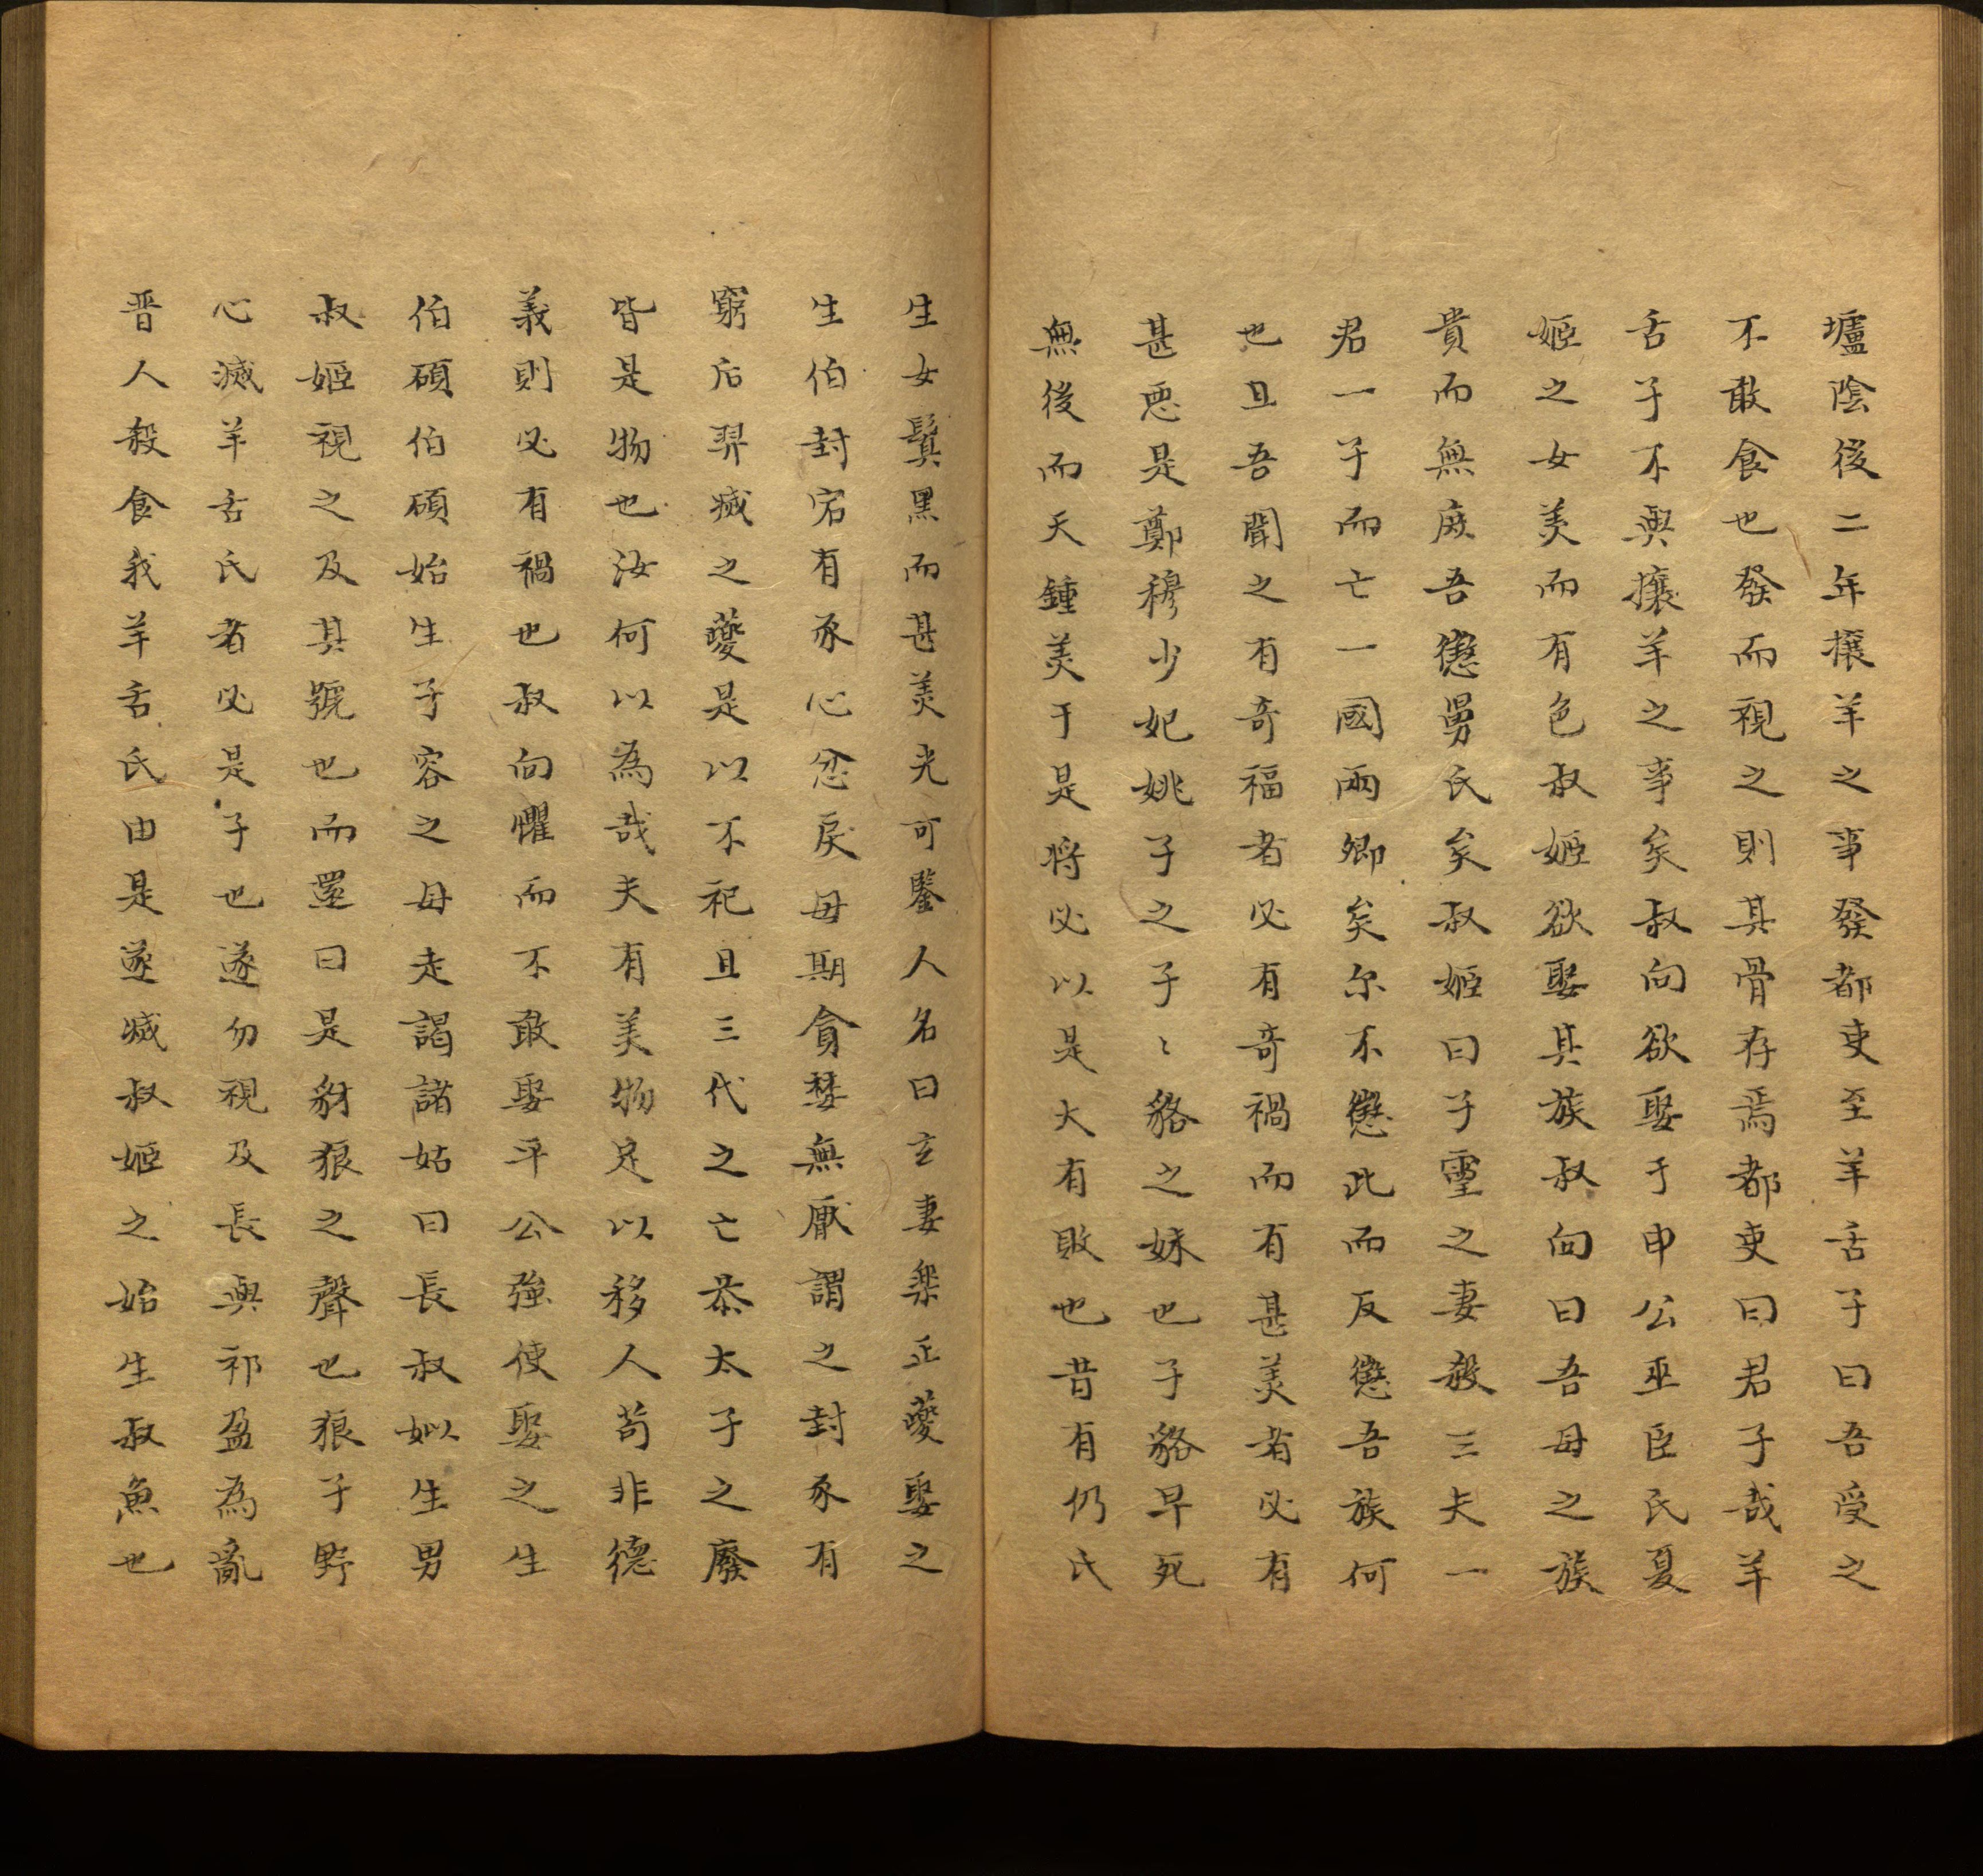 壚陰後二年攘羊之事發都吏至羊舌子曰吾受之
不敢食也發而視之則其骨存焉都吏曰君子哉羊
舌子不與攘羊之事矣叔向欲娶于申公巫臣氏夏
姬之女美而有色叔姬欲娶其族叔向曰吾母之族
貴而無庶吾懲舅氏矣叔姬曰子靈之妻殺三夫一
君一子而亡一國兩卿矣尔不懲此而反懲吾族何
也且吾聞之有奇福者必有奇禍而有甚美者必有
甚惡是鄭穆少妃姚子之子〻貉之妹也子貉早死
無後而天鍾美于是将必以是大有敗也昔有仍氏
生女鬒黑而甚美光可鑒人名曰玄妻樂正夔娶之
生伯封宕有豕心忿戾毋期貪婪無厭謂之封豕有
窮后羿滅之夔是以不祀且三代之亡恭太子之廢
皆是物也汝何以為哉夫有美物足以移人苟非德
義則必有禍也叔向懼而不敢娶平公強使娶之生
伯碩伯碩始生子容之母走謁諸姑曰長叔姒生男
叔姬視之及其號也而還曰是豺狼之聲也狼子野
心滅羊舌氏者必是子也遂勿視及長與祁盈為亂
晋人殺食我羊舌氏由是遂滅叔姬之始生叔魚也